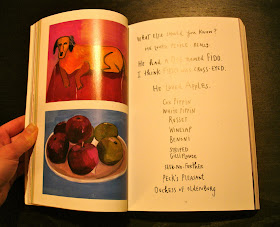 WHAT ELSE SHOULD YOU KNOW?
He HAD A DOG NAMED FIDO.
I THINK FIDO WAS CROSS-EYED.
He LOVED APPLES.
COX PIPPIN
WHITE PIPPIN
RUSSET
WINESAP
BENONI
STRIPED
GILLIFLOWER
PECK'S PLEASANT
DUCHESS of OLDENBURG